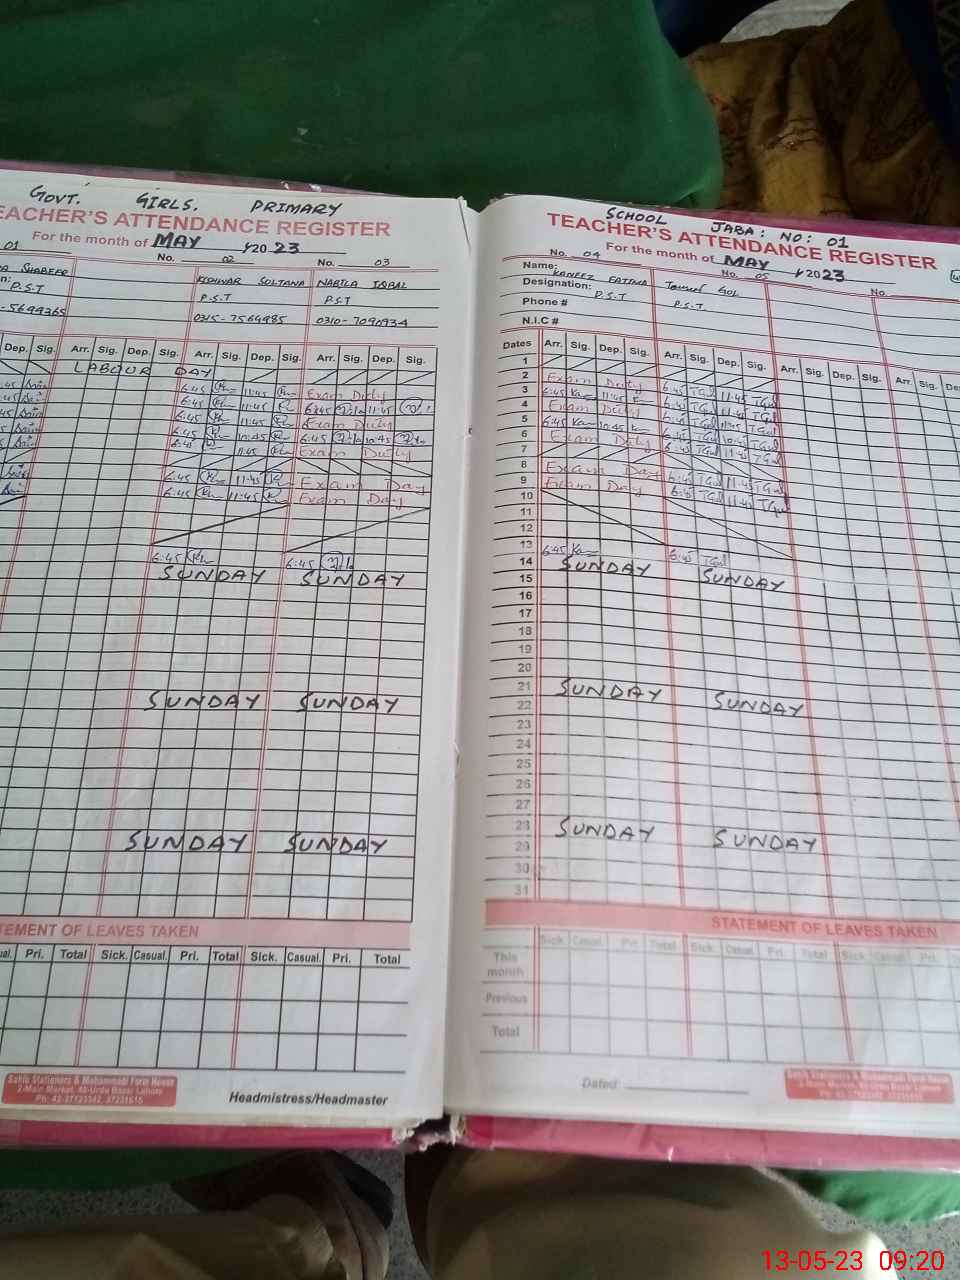 GOVT. GIRLS. PRIMARY
TEACHER'S ATTENDANCE REGISTER
For the month of MAY 2023
01 No. 02 No. 03
SHABEER KISHWAR SULTANA NABILA IQBAL
P.S.T P.S.T P.S.T
-5699365 0315-7564985 0310-7090934
Dep. Sig. Arr. Sig. Dep. Sig. Arr. Sig. Dep. Sig. Arr. Sig. Dep. Sig.
LABOUR DAY
6:45 11:45 Exam Duty
6:45 11:45 6:45 11:45
6:45 11:45 Exam Duty
6:45 10:45 6:45 10:45
6:45 11:45 Exam Duty
6:45 11:45 Exam Day
6:45 11:45 Exam Day
6:45 6:45
SUNDAY SUNDAY
SUNDAY SUNDAY
SUNDAY SUNDAY
STATEMENT OF LEAVES TAKEN
Pri. Total Sick. Casual. Pri. Total Sick. Casual. Pri. Total
Sahib Stationers & Mohammadi Form House
2-Main Market, 40-Urdu Bazar Lahore
Ph: 42-37123342, 37231615
Headmistress/Headmaster
SCHOOL JABA: NO: 01
TEACHER'S ATTENDANCE REGISTER
For the month of MAY 2023
No. 04 No. 05 No.
Name: KANEEZ FATIMA GUL
Designation: P.S.T P.S.T
Phone #
N.I.C #
Dates Arr. Sig. Dep. Sig. Arr. Sig. Dep. Sig. Arr. Sig. Dep. Sig. Arr. Sig. Dep.
1
2 Exam Duty 6:45 TGul 11:45 TGul
3 6:45 11:45 6:45 TGul 11:45 TGul
4 Exam Duty 6:45 TGul 11:45 TGul
5 6:45 10:45 6:45 TGul 10:45 TGul
6 Exam Duty 6:45 TGul 11:45 TGul
7
8 Exam Day 6:45 TGul 11:45 TGul
9 Exam Day 6:45 TGul 11:45 TGul
10
11
12
13 6:45 6:45 TGul
14 SUNDAY SUNDAY
15
16
17
18
19
20
21 SUNDAY SUNDAY
22
23
24
25
26
27
28 SUNDAY SUNDAY
29
30
31
STATEMENT OF LEAVES TAKEN
Sick. Casual. Pri. Total Sick. Casual. Pri. Total Sick. Casual. Pri.
This month
Previous
Total
Dated:
Sahib Stationers & Mohammadi Form House
2-Main Market, 40-Urdu Bazar Lahore
Ph: 42-37123342, 37231615
13-05-23 09:20